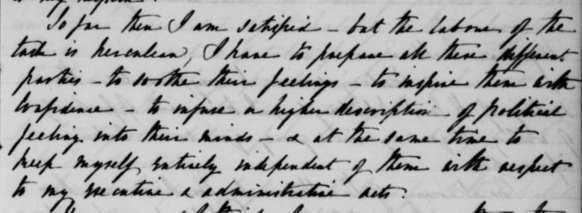 So far then I am satisfied - but the labour of the
task is herculean, I have to prepare all these different
parties - to soothe their feelings - to inspire them with
confidence - to infuse a higher description of political
feeling into their minds - & at the same time to
keep myself entirely independent of them with respect
to my executive & administrative acts.